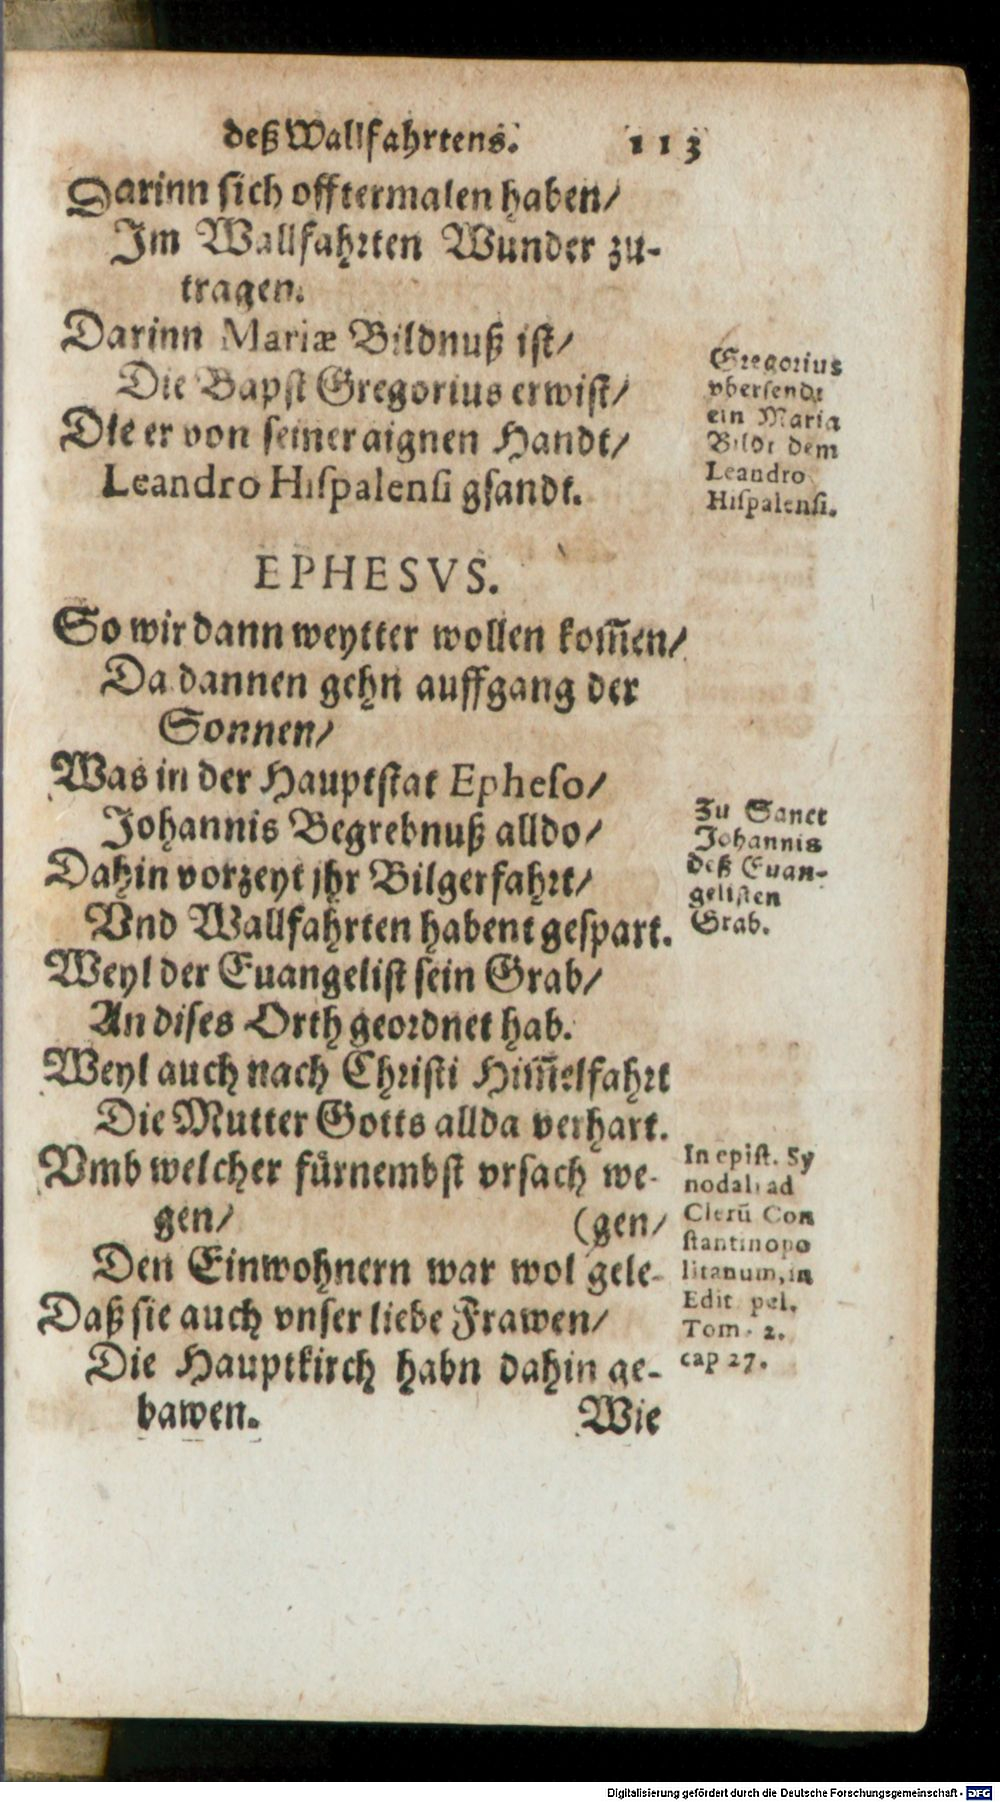 deß Wallfahrtens. 113
Darinn sich offtermalen haben/
Im Wallfahrten Wunder zu-
tragen.
Darinn Mariæ Bildnuß ist/
Die Bapst Gregorius erwist/
Die er von seiner aignen Handt/
Leandro Hispalensi gsandt.
Gregorius
vbersendt
ein Maria
Bildt dem
Leandro
Hispalensi.
EPHESVS.
So wir dann weytter wollen kom̃en/
Da dannen gehn auffgang der
Sonnen/
Was in der Hauptstat Epheso/
Johannis Begrebnuß alldo/
Dahin vorzeyt jhr Bilgerfahrt/
Vnd Wallfahrten habent gespart.
Zu Sanct
Johannis
deß Euan-
gelisten
Grab.
Weyl der Euangelist sein Grab/
An dises Orth geordnet hab.
Weyl auch nach Christi Him̃elfahrt
Die Mutter Gotts allda verhart.
Vmb welcher fürnembst vrsach we-
gen/ (gen/
Den Einwohnern war wol gele-
Daß sie auch vnser liebe Frawen/
Die Hauptkirch habn dahin ge-
bawen. Wie
In epist. Sy
nodali ad
Clerū Con
stantinopo
litanum, in
Edit. pel.
Tom. 2.
cap 27.
Digitalisierung gefördert durch die Deutsche Forschungsgemeinschaft - DFG